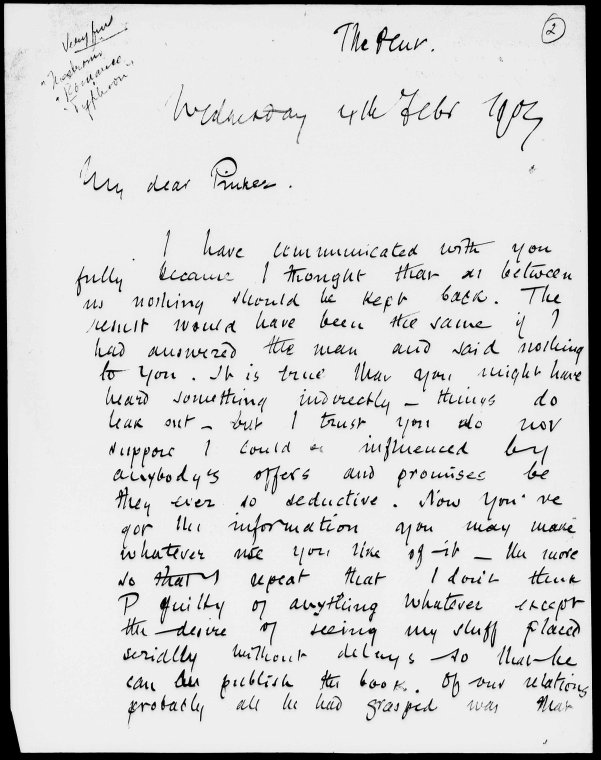 2
Very fine
"Nostromo
"Romance
"Typhoon"
The Pent.
Wednesday 4th Febr 190
My dear Pinker.
I have communicated with you
fully because I thought that as between
us nothing should be kept back. The
result would have been the same if I
had answered the man and said nothing
to you. It is true that you might have
heard something indirectly – things do
leak out – but I trust you do not
suppose I could be influenced by
anybody's offers and promises be
they ever so seductive. Now you've
got the information you may make
whatever use you like of it – the more
so that I repeat that I don't think
P guilty of anything whatever except
the desire of seeing my stuff placed
serially without delays so that he
can publish the book. Of our relations
probably all he had grasped was that